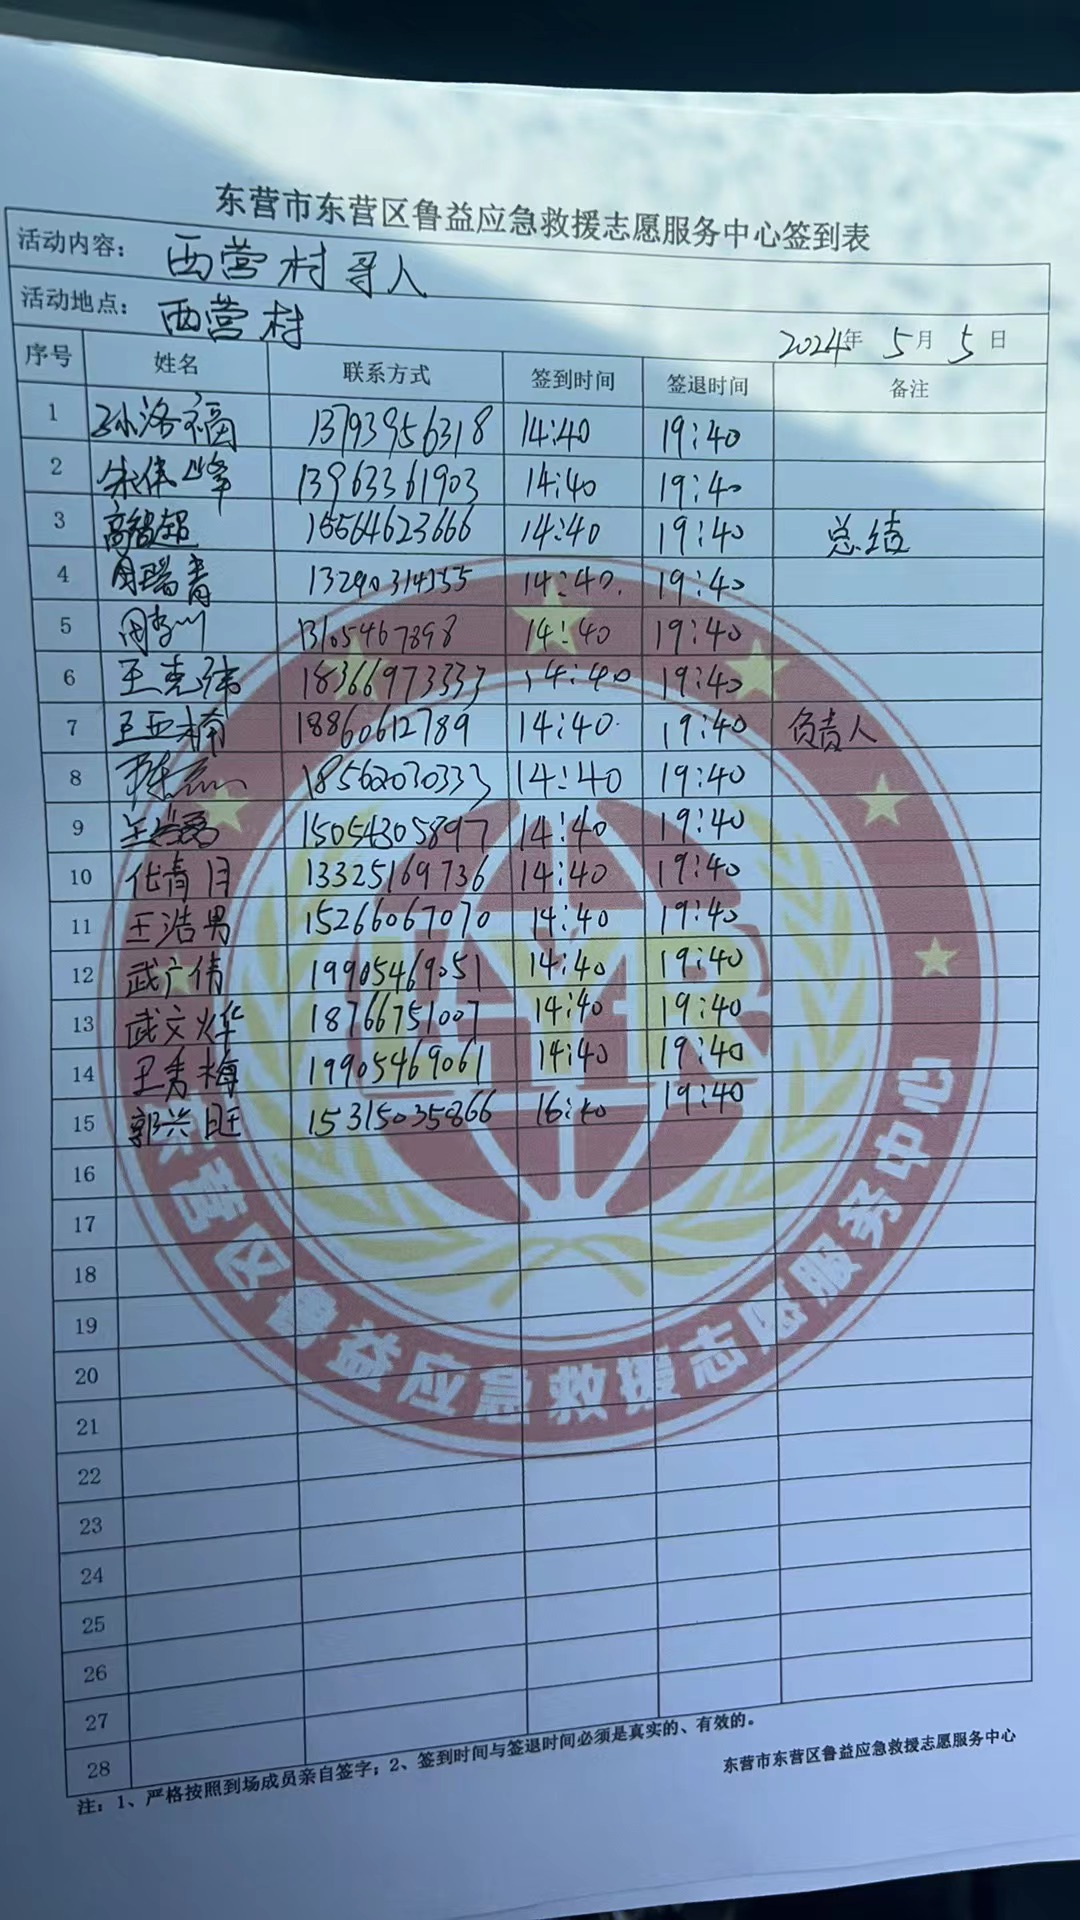 东营市东营区鲁益应急救援志愿服务中心签到表
活动内容: 西营村寻人
活动地点: 西营村
2024年 5月 5日
序号 姓名 联系方式 签到时间 签退时间 备注
1 孙洛福 13793956318 14:40 19:40
2 朱伟峰 13963361903 14:40 19:40
3 高智超 15564623666 14:40 19:40 总结
4 周瑞青 13290314355 14:40 19:40
5 周李川 13105467898 14:40 19:40
6 王克伟 18366973333 14:40 19:40
7 王亚楠 18860612789 14:40 19:40 负责人
8 陈 18562030333 14:40 19:40
9 15054305897 14:40 19:40
10 化青月 13325169736 14:40 19:40
11 王浩男 15266067070 14:40 19:40
12 武广倩 19905469051 14:40 19:40
13 武文烨 18766751007 14:40 19:40
14 卫秀梅 19905469061 14:40 19:40
15 郭兴旺 15315035866 16:40 19:40
16
17
18
19
20
21
22
23
24
25
26
27
28
注:1、严格按照到场成员亲自签字;2、签到时间与签退时间必须是真实的、有效的。
东营市东营区鲁益应急救援志愿服务中心
营区鲁益应急救援志愿服务中心